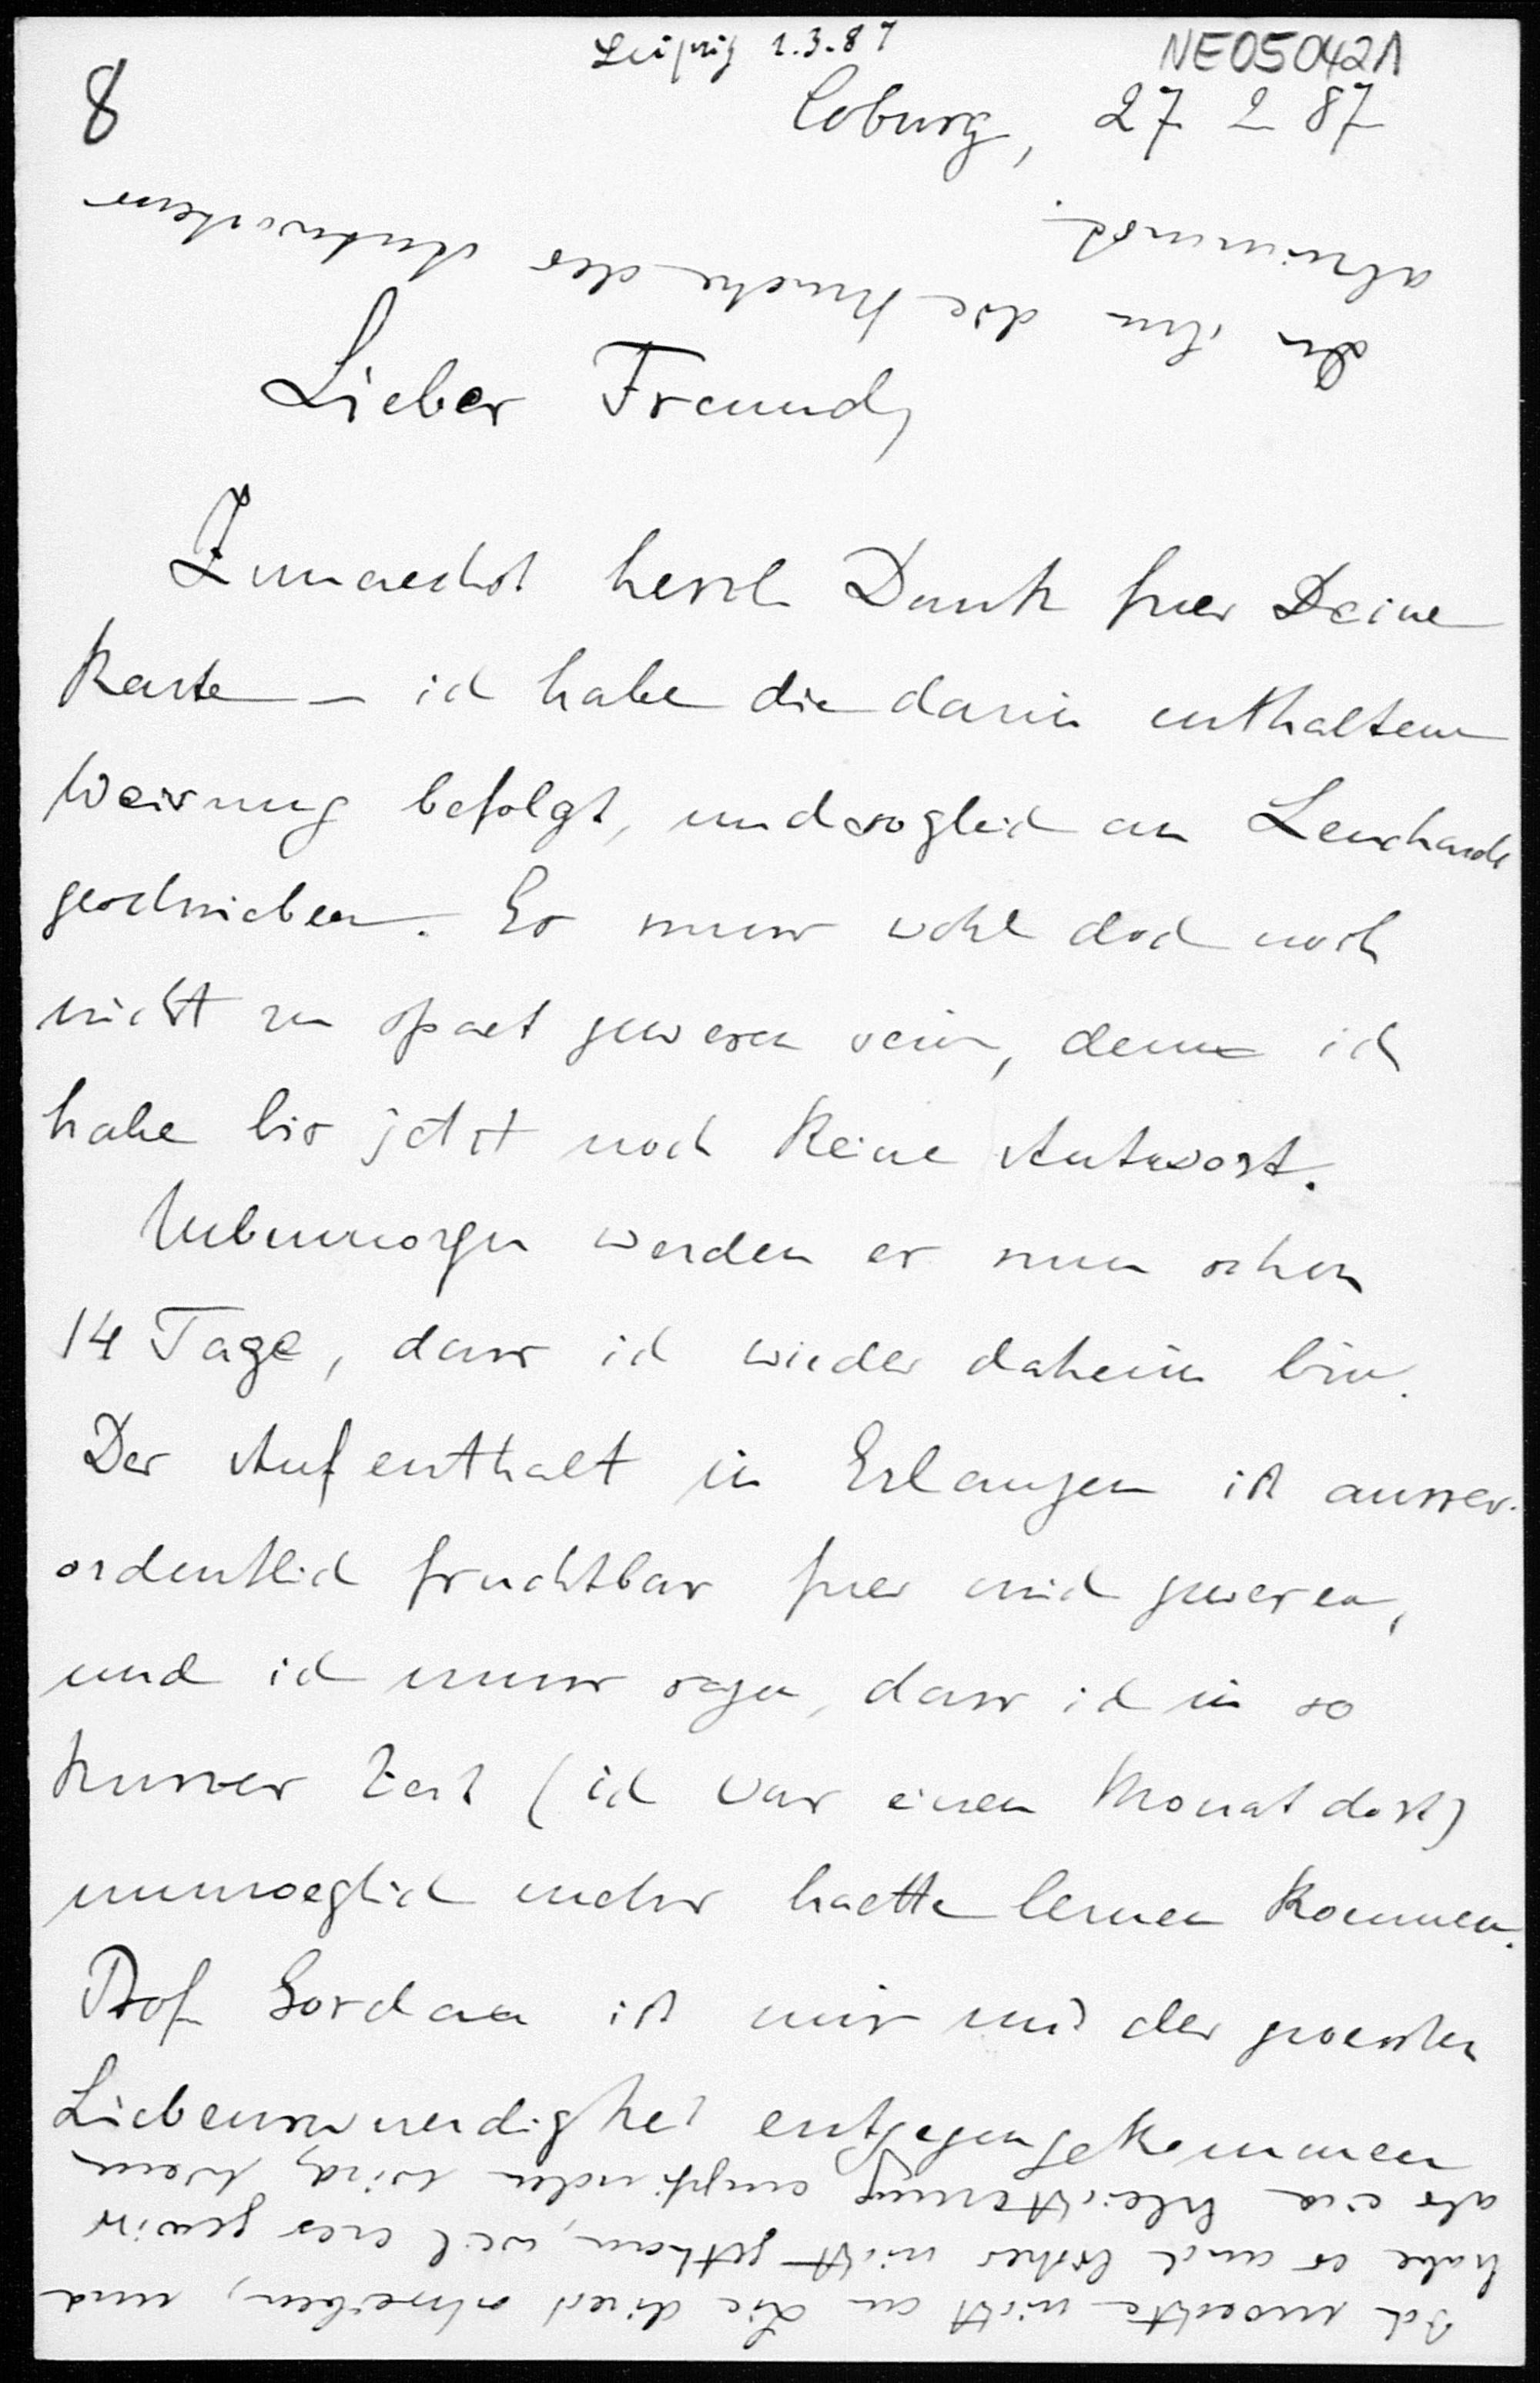 Leipzig 1.3.87
NE050421
8
Coburg, 27 2 87
Lieber Freund,
Zunaechst herzl Dank fuer Deine
Karte – ich habe die darin enthaltene
Weisung befolgt, und sogleich an
geschrieben. Es muss wohl doch noch
nicht zu spaet gewesen sein, denn ich
habe bis jetzt noch keine Antwort.
Uebermorgen werden es nun schon
14 Tage, dass ich wieder daheim bin.
Der Aufenthalt in Erlangen ist ausser-
ordentlich fruchtbar fuer mich gewesen,
und ich muss sagen, dass ich in so
kurzer Zeit (ich war einen Monat dort)
unmoeglich mehr haette lernen koennen.
Prof Gordan ist mir mit der groessten
Liebenswuerdigkeit entgegengekommen
Ich moechte nicht an Sie direct schreiben, und
habe es auch bisher nicht gethan, weil er es gewiss
als eine Erleichterung empfinden wird, wenn
Du ihm die Muehe des Antwortens
abnimmst.